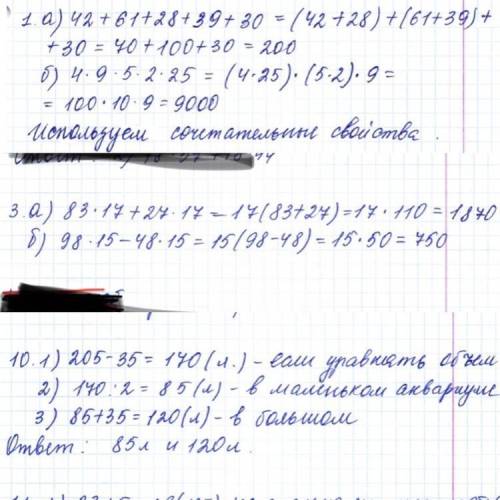 1. а) 42 + 61 + 28 + 39 + 30 = (42 + 28) + (61 + 39) +
+ 30 = 70 + 100 + 30 = 200
б) 4 · 9 · 5 · 2 · 25 = (4 · 25) · (5 · 2) · 9 =
= 100 · 10 · 9 = 9000
Используем сочетательные свойства.
3. а) 83 · 17 + 27 · 17 = 17(83 + 27) = 17 · 110 = 1870
б) 98 · 15 − 48 · 15 = 15(98 − 48) = 15 · 50 = 750
10. 1) 205 − 35 = 170 (л.) − если уравнять объем
2) 170 : 2 = 85 (л) − в маленьком аквариуме
3) 85 + 35 = 120 (л) − в большом
Ответ: 85 л и 120 л.